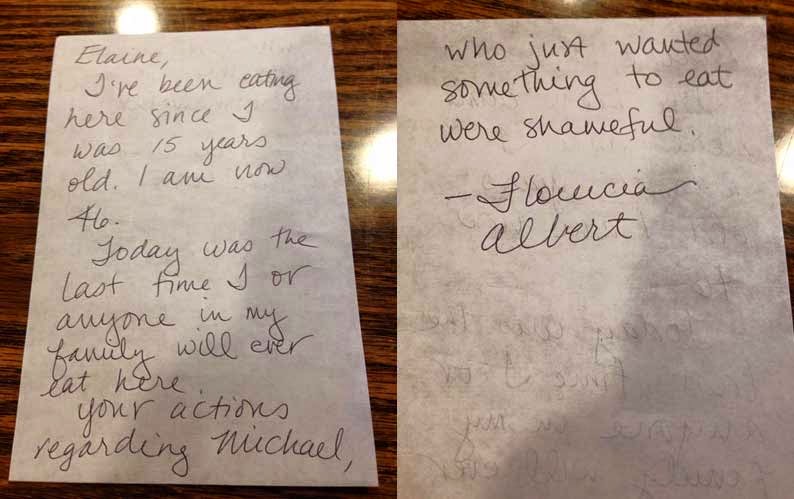 Elaine,
I've been eating
here since I
was 15 years
old. I am now
46.
Today was the
last time I or
anyone in my
family will ever
eat here.
Your actions
regarding Michael,
who just wanted
something to eat
were shameful.
- Florencia
Albert